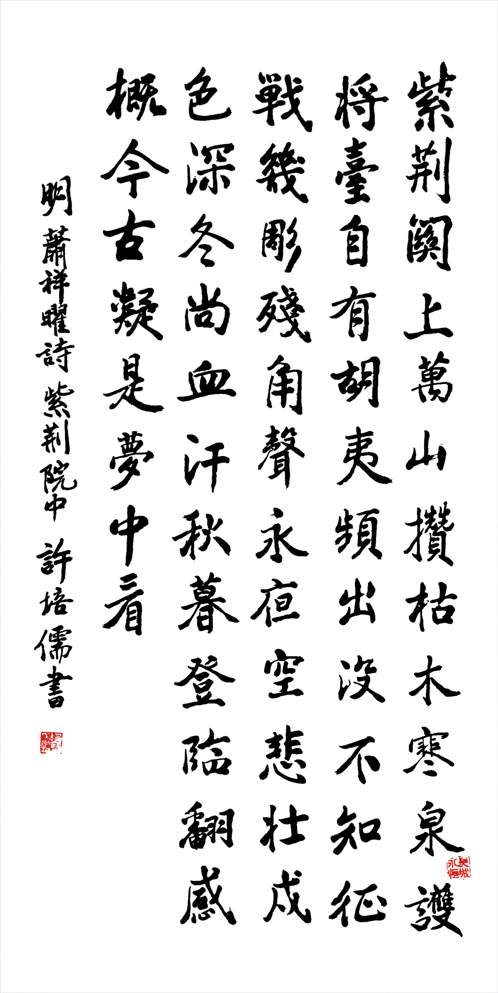 紫荆関上萬山攢枯木寒泉護
将臺自有胡夷頻出没不知征
戰幾彫殘角聲永夜空悲壯戍
色深冬尚血汗秋暮登臨翻感
概今古凝是夢中看
明蕭祥曜詩紫荆院中許培儒書